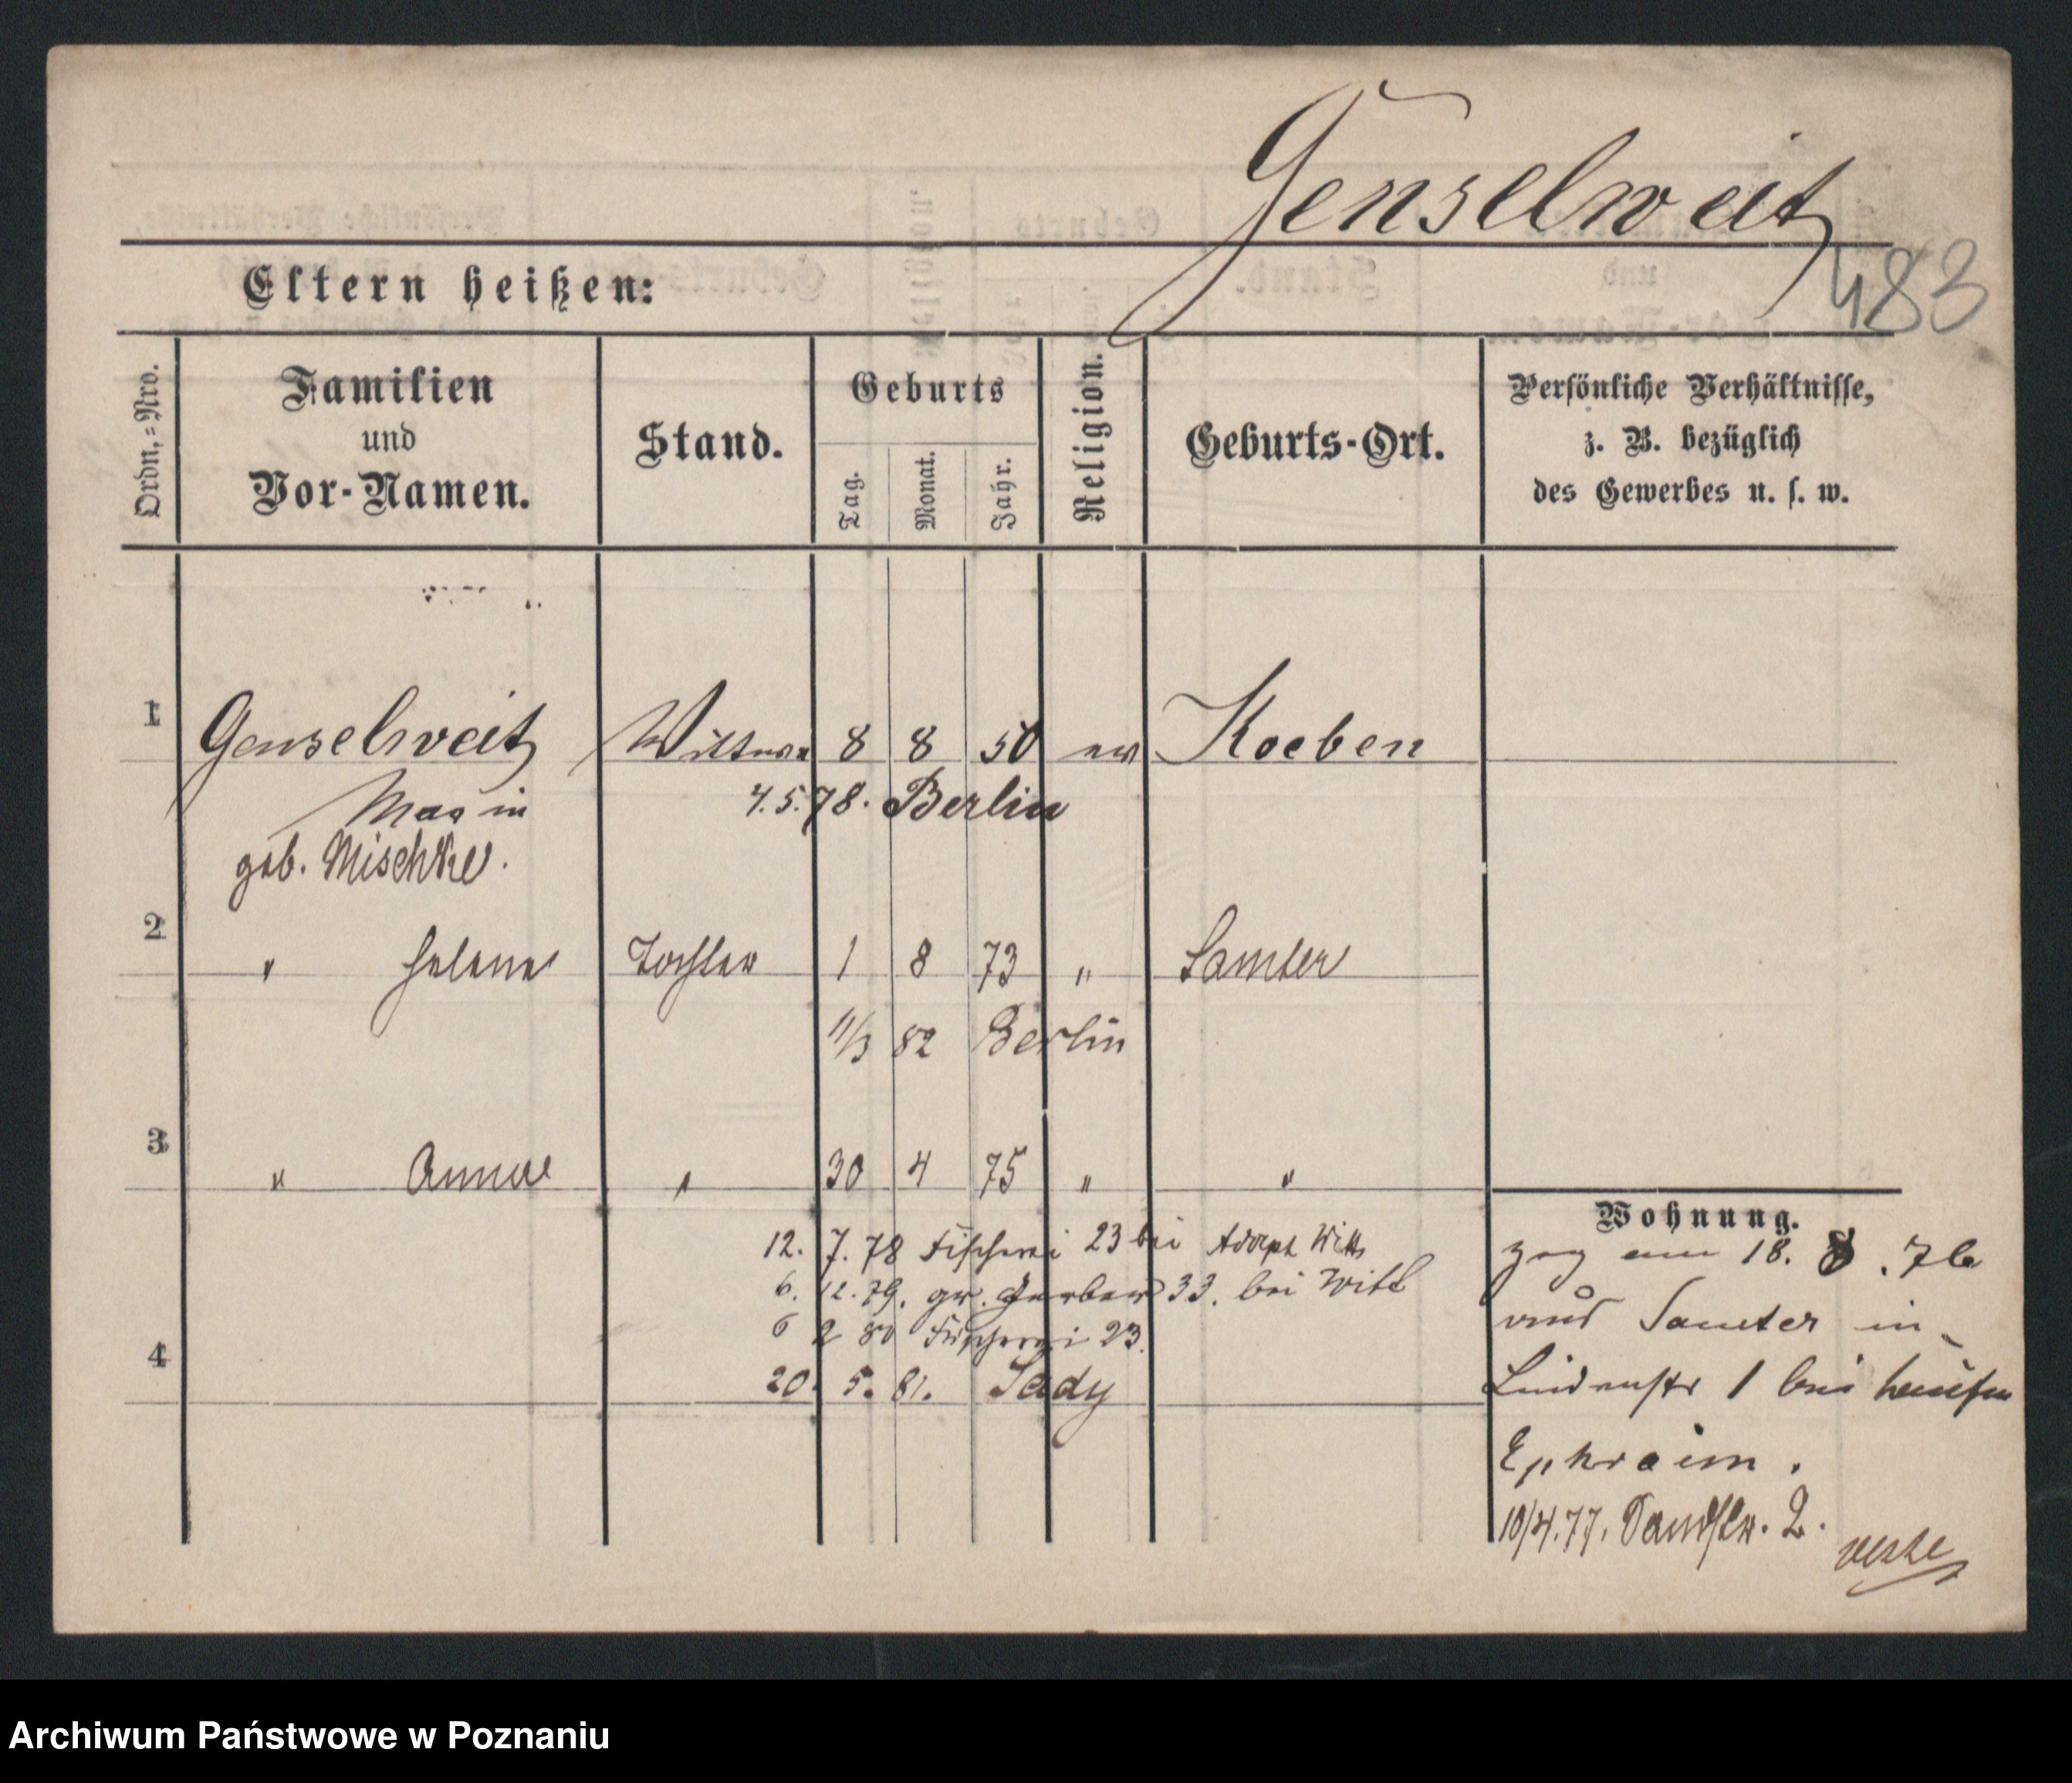 Genselweit
483
Eltern heißen:
Ordn.-Nro.
Familien
und
Vor-Namen.
Stand.
Geburts
Tag.
Monat.
Jahr.
Religion.
Geburts-Ort.
Persönliche Verhältnisse,
z. B. bezüglich
des Gewerbes u. s. w.
1 Genselweit Wittwe 8 8 50 ev Koeben
4.5.78. Berlin
geb. Mischke.
2 " Helene Tochter 1 8 73 " Samter
11/3 82 Berlin
3 " Anna " 30 4 75 " "
Wohnung.
12. 7. 78 Fischerei 23 bei Adolph Witt
6. 12. 79. gr. Gerber 33. bei Witt
6 2 80 Fischerei 23.
4
20. 5. 81. Sady
zog am 18. 8. 76
aus Samter in
Lindenstr 1 bei
Ephraim.
10/4.77. Sandstr. 2.